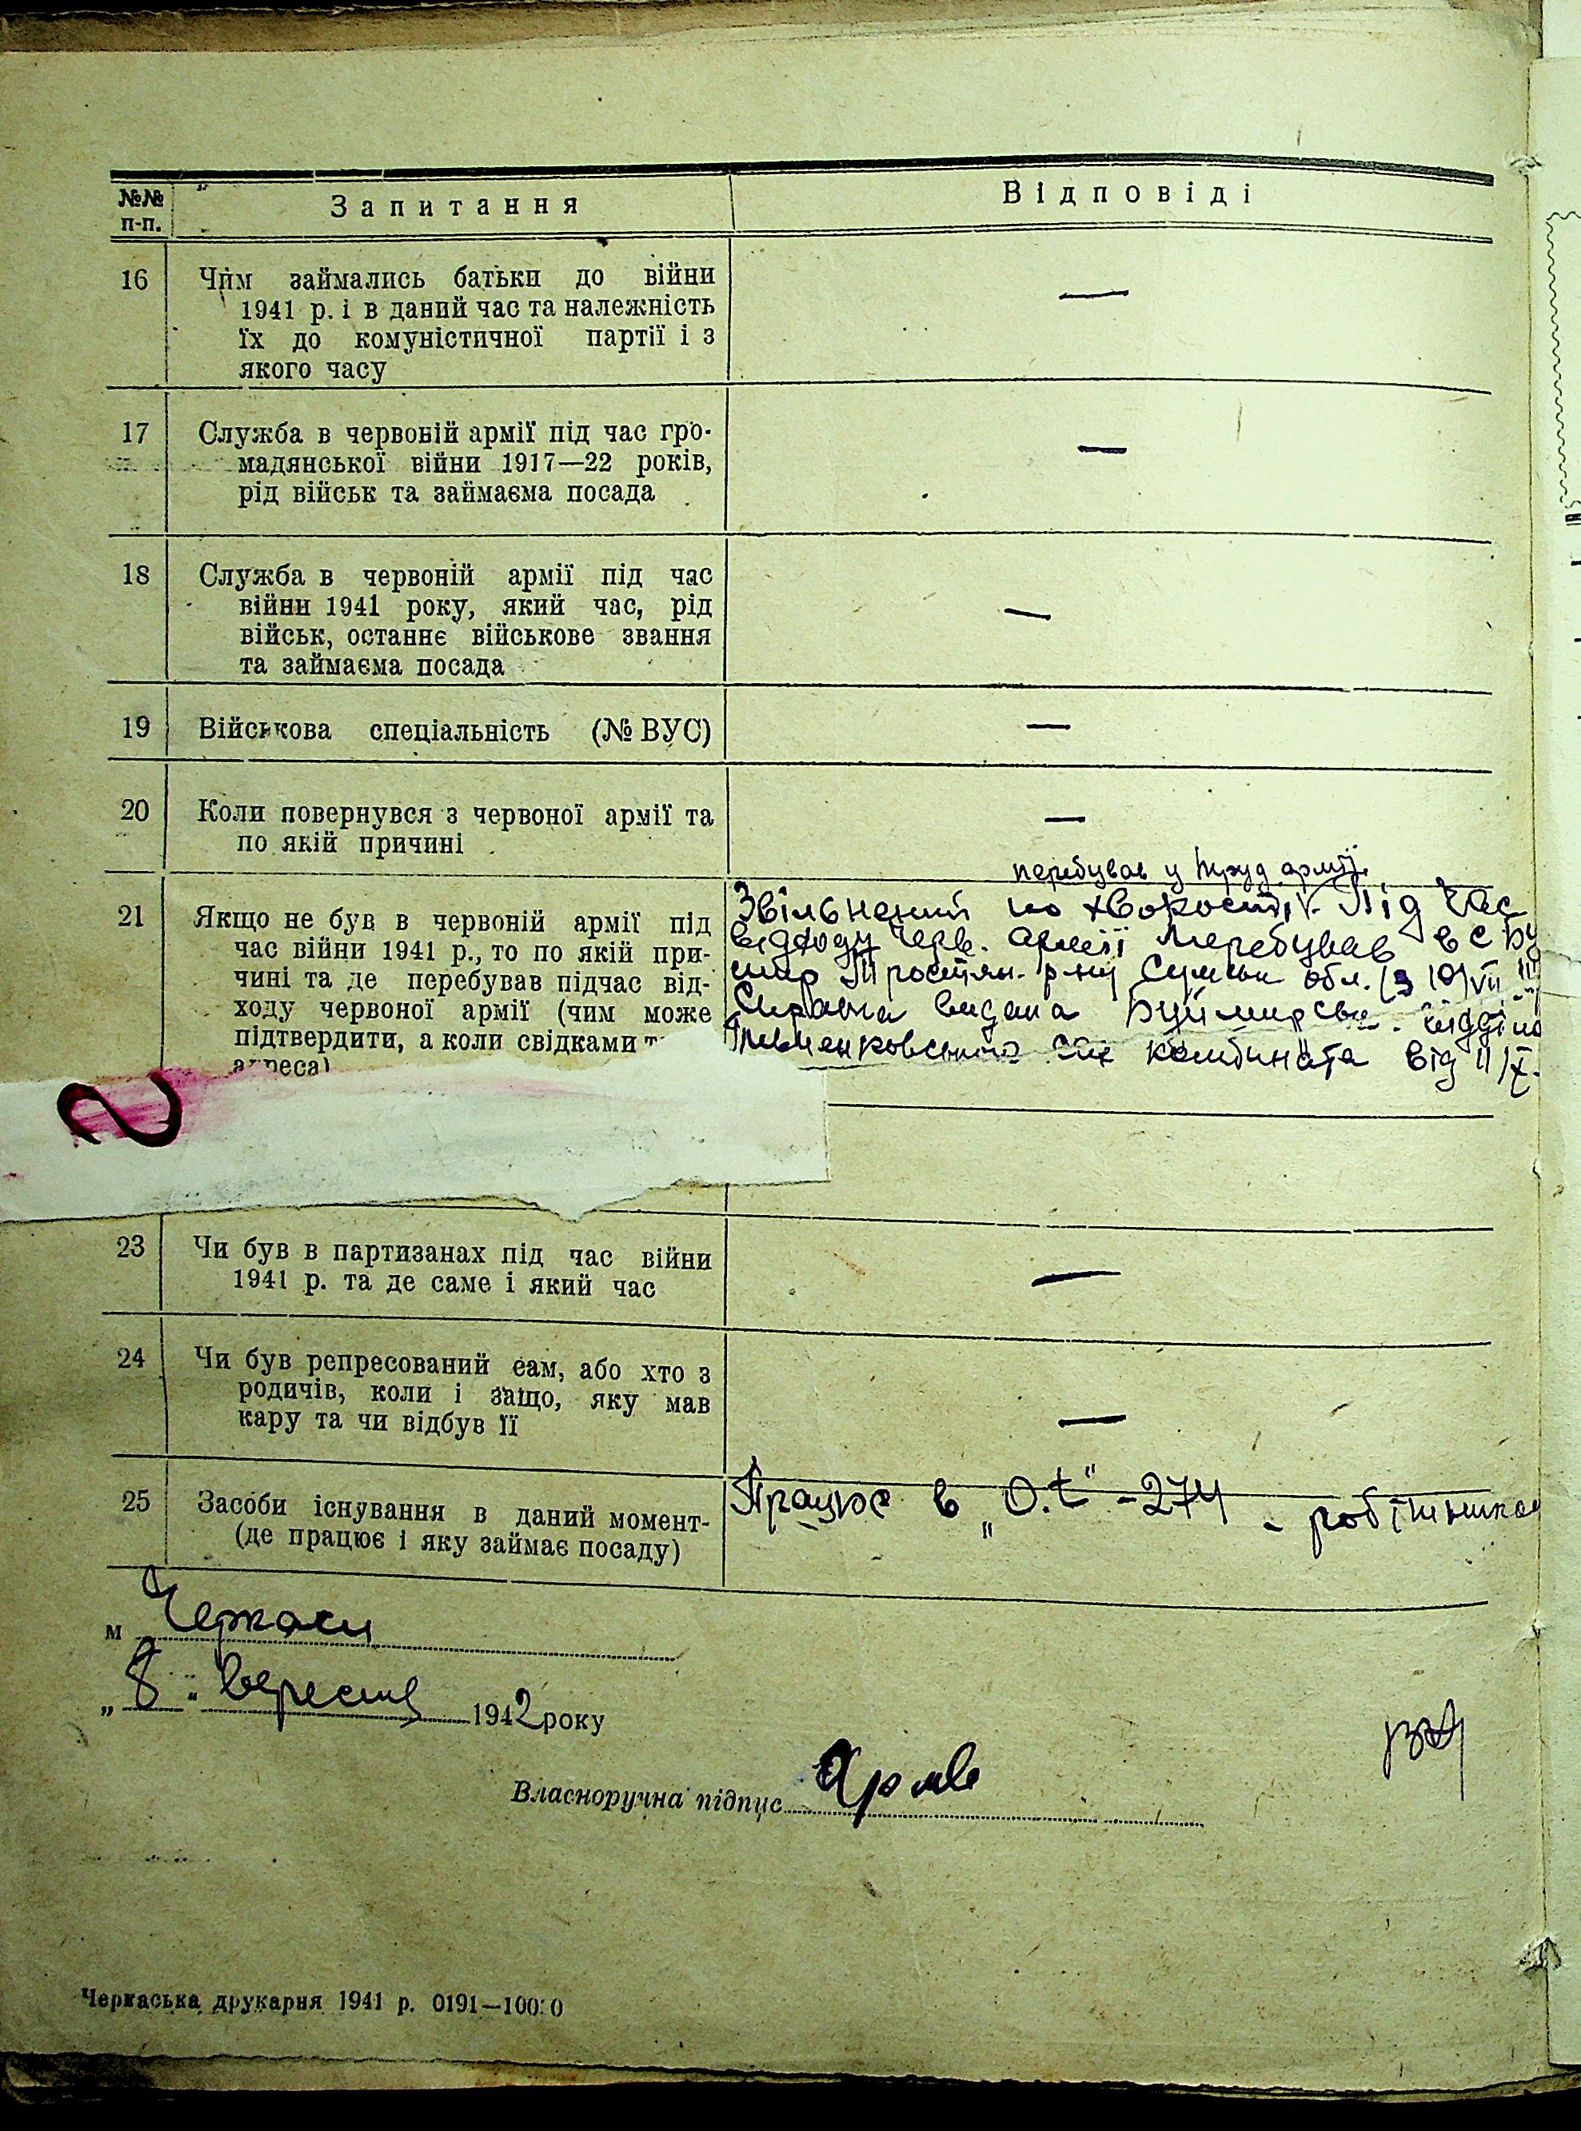 №№ п-п.
Запитання
Відповіді
16
Чим займались батьки до війни
1941 р. і в даний час та належність
їх до комуністичної партії і з
якого часу
—
17
Служба в червоній армії під час гро-
мадянської війни 1917—22 років,
рід військ та займаєма посада
—
18
Служба в червоній армії під час
війни 1941 року, який час, рід
військ, останнє військове звання
та займаєма посада
—
19
Військова спеціальність (№ ВУС)
—
20
Коли повернувся з червоної армії та
по якій причині
—
21
Якщо не був в червоній армії під
час війни 1941 р., то по якій при-
чині та де перебував підчас від-
ходу червоної армії (чим може
підтвердити, а коли свідками
адреса)
перебував у труд армії.
Звільнений по хворості. Під час
відходу черв. армії перебував в с Бу
мир Тростян. р-ну Сумськ обл. (з 10/VII
Справка видана Буймирськ. відділ
комбината від 11/X.
23
Чи був в партизанах під час війни
1941 р. та де саме і який час
—
24
Чи був репресований сам, або хто з
родичів, коли і защо, яку мав
кару та чи відбув її
—
25
Засоби існування в даний момент-
(де працює і яку займає посаду)
Працює в „O.t" - 274 - робітником
м Черкаси
„8" вересня 1942 року
Власноручна підпис
Черкаська друкарня 1941 р. 0191—10000